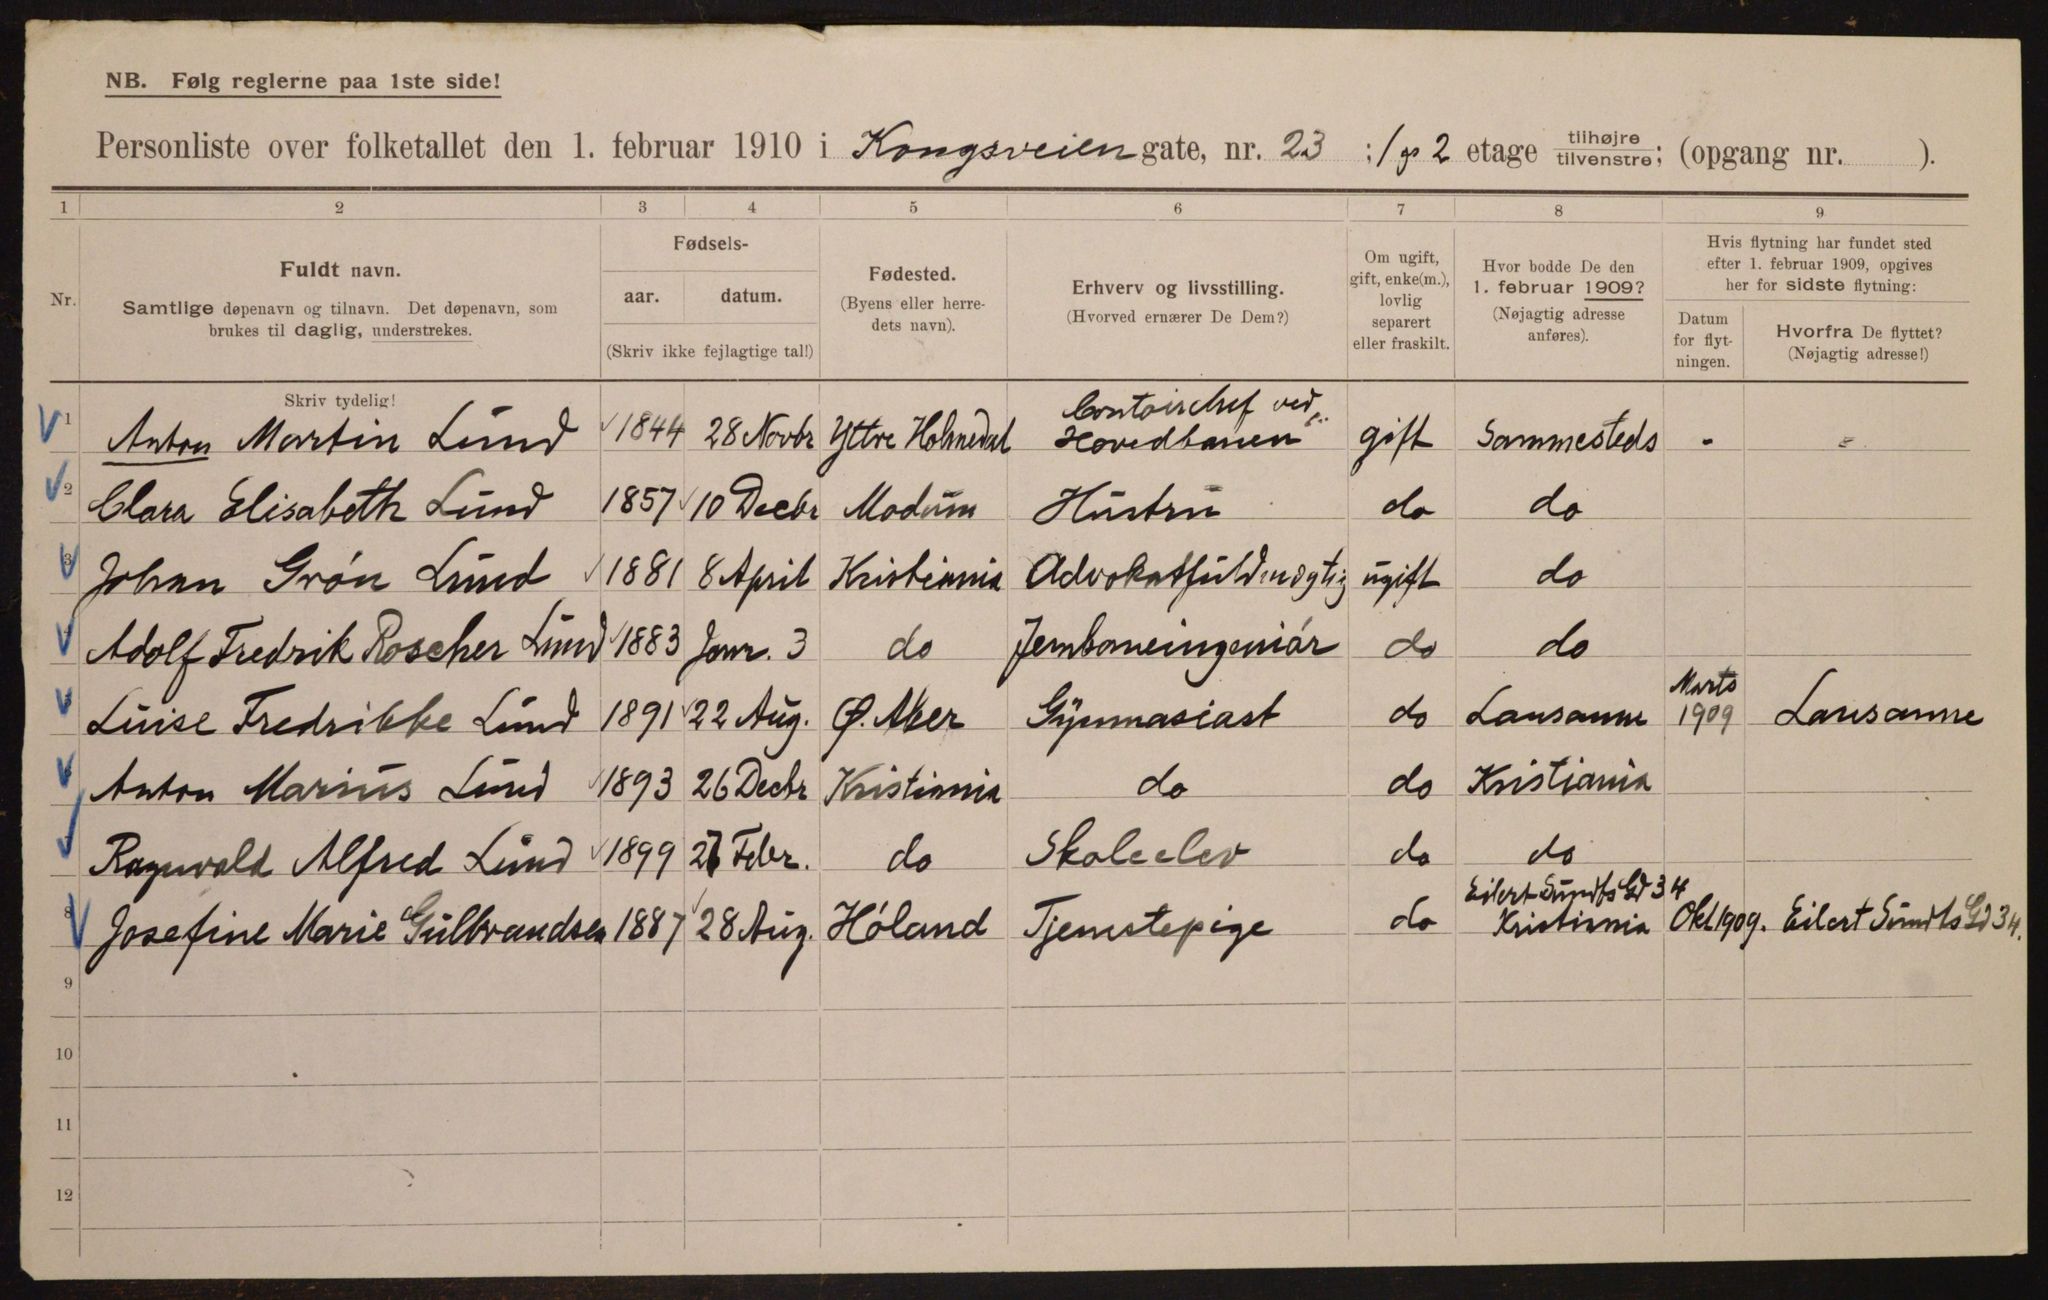 NB. Følg reglerne paa 1ste side!
Personliste over folketallet den 1. februar 1910 i Kongsveien gate, nr. 23 ; 1 og 2 etage tilhøjre tilvenstre; (opgang nr. ).
1 2 3 4 5 6 7 8 9
Nr.
Fuldt navn.
Samtlige døpenavn og tilnavn. Det døpenavn, som
brukes til daglig, understrekes.
Fødsels-
aar. datum.
(Skriv ikke fejlagtige tal!)
Fødested.
(Byens eller herre-
dets navn).
Erhverv og livsstilling.
(Hvorved ernærer De Dem?)
Om ugift,
gift, enke(m.),
lovlig
separert
eller fraskilt.
Hvor bodde De den
1. februar 1909?
(Nøjagtig adresse
anføres).
Hvis flytning har fundet sted
efter 1. februar 1909, opgives
her for sidste flytning:
Datum
for flyt-
ningen.
Hvorfra De flyttet?
(Nøjagtig adresse!)
Skriv tydelig!
1 Anton Martin Lund 1844 28 Novbr Yttre Holmedal Contoirchef ved Hovedbanen gift Sammesteds - -
2 Clara Elisabeth Lund 1857 10 Decbr Modum Hustru do do
3 Johan Grón Lund 1881 8 April Kristiania Advokatfuldmægtig ugift do
Adolf Fredrik Roscher Lund 1883 Janr. 3 do Jernbaneingeniór do do
Luise Fredrikke Lund 1891 22 Aug. Ø. Aker Gymnasiast do Lausanne Marts 1909 Lausanne
Anton Marius Lund 1893 26 Decbr Kristiania do do Kristiania
Ragnvald Alfred Lund 1899 27 Febr. do Skoleelev do do
8 Josefine Marie Gulbrandsen 1887 28 Aug. Hóland Tjenestepige do Eilert Sundts Gd 34 Kristiania Okt 1909. Eilert Sundts Gd 34.
9
10
11
12